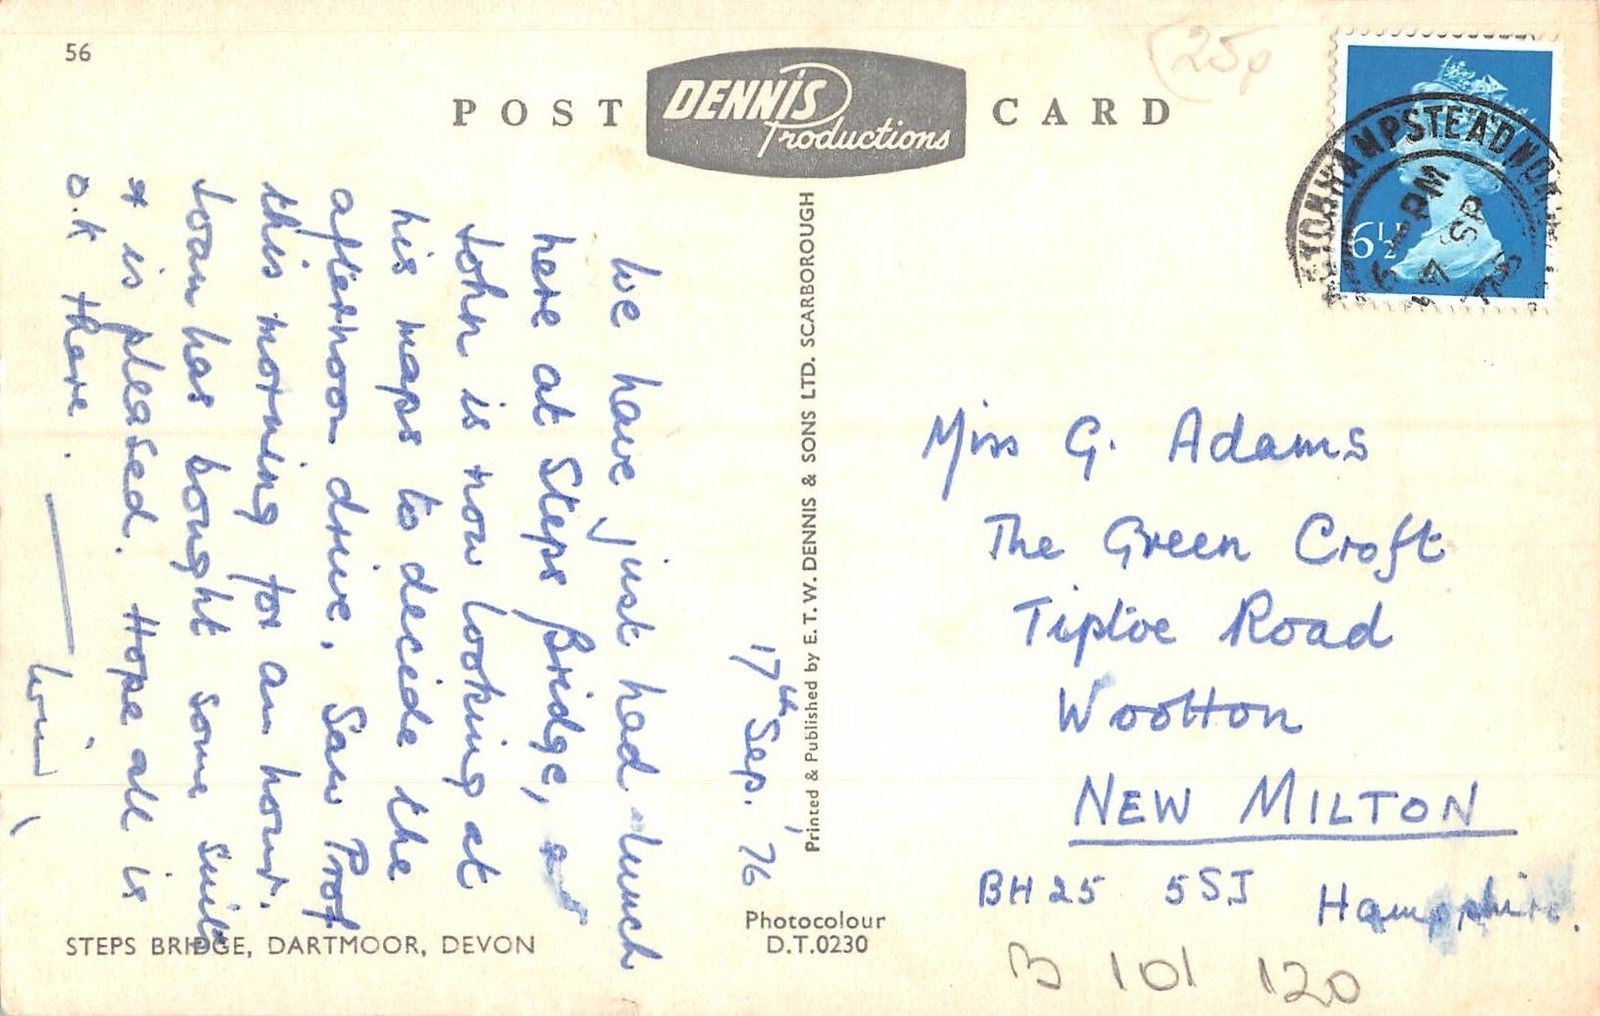 56
POST CARD
DENNIS
Productions
25p
MORETONHAMPSTEAD NEWTON
PM
SP
6½
17th Sep. '76
We have just had lunch
here at Steps Bridge, and
John is now looking at
his maps to decide the
afternoon drive. Saw Prof
this morning for an hour.
Joan has bought some suits
& is pleased. Hope all is
o.k there.
Win
Printed & Published by E. T. W. DENNIS & SONS LTD. SCARBOROUGH
Miss G. Adams
The Green Croft
Tiptoe Road
Wootton
NEW MILTON
BH25 5SJ Hampshire.
STEPS BRIDGE, DARTMOOR, DEVON
Photocolour
D.T.0230
B 101 120